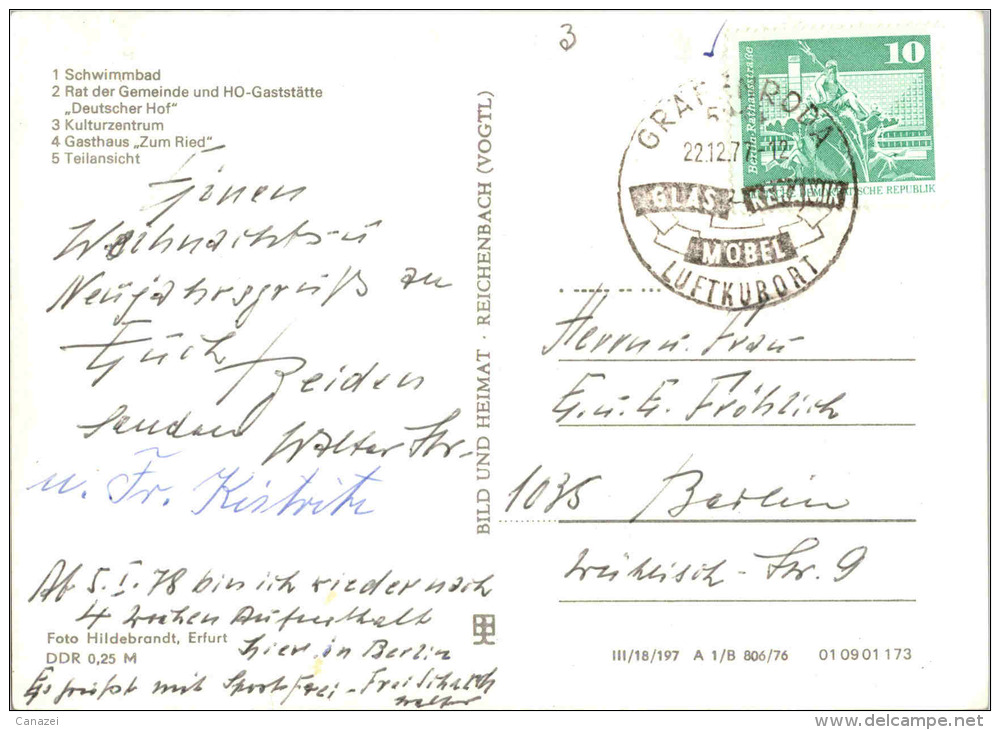 1 Schwimmbad
2 Rat der Gemeinde und HO-Gaststätte
„Deutscher Hof“
3 Kulturzentrum
4 Gasthaus „Zum Ried“
5 Teilansicht
Einen
Weihnachts-u
Neujahrsgruß an
Euch Beiden
senden Walter Str-
u. Fr. Kistritz
Ab 5.I.78 bin ich wieder nach
4 Wochen Aufenthalt
hier in Berlin
Es grüßt mit Sportfrei -
Walter
Foto Hildebrandt, Erfurt
DDR 0,25 M
BILD UND HEIMAT · REICHENBACH (VOGTL)
3
10
Berlin-Rathausstraße
DEMOKRATISCHE REPUBLIK
GRÄFENRODA
22.12.77-12
GLAS
KERAMIK
MÖBEL
LUFTKURORT
Herrn u. Frau
E. u. E. Fröhlich
1035 Berlin
Wühlisch-Str. 9
III/18/197 A 1/B 806/76 01 09 01 173
Canazei
delcampe.net